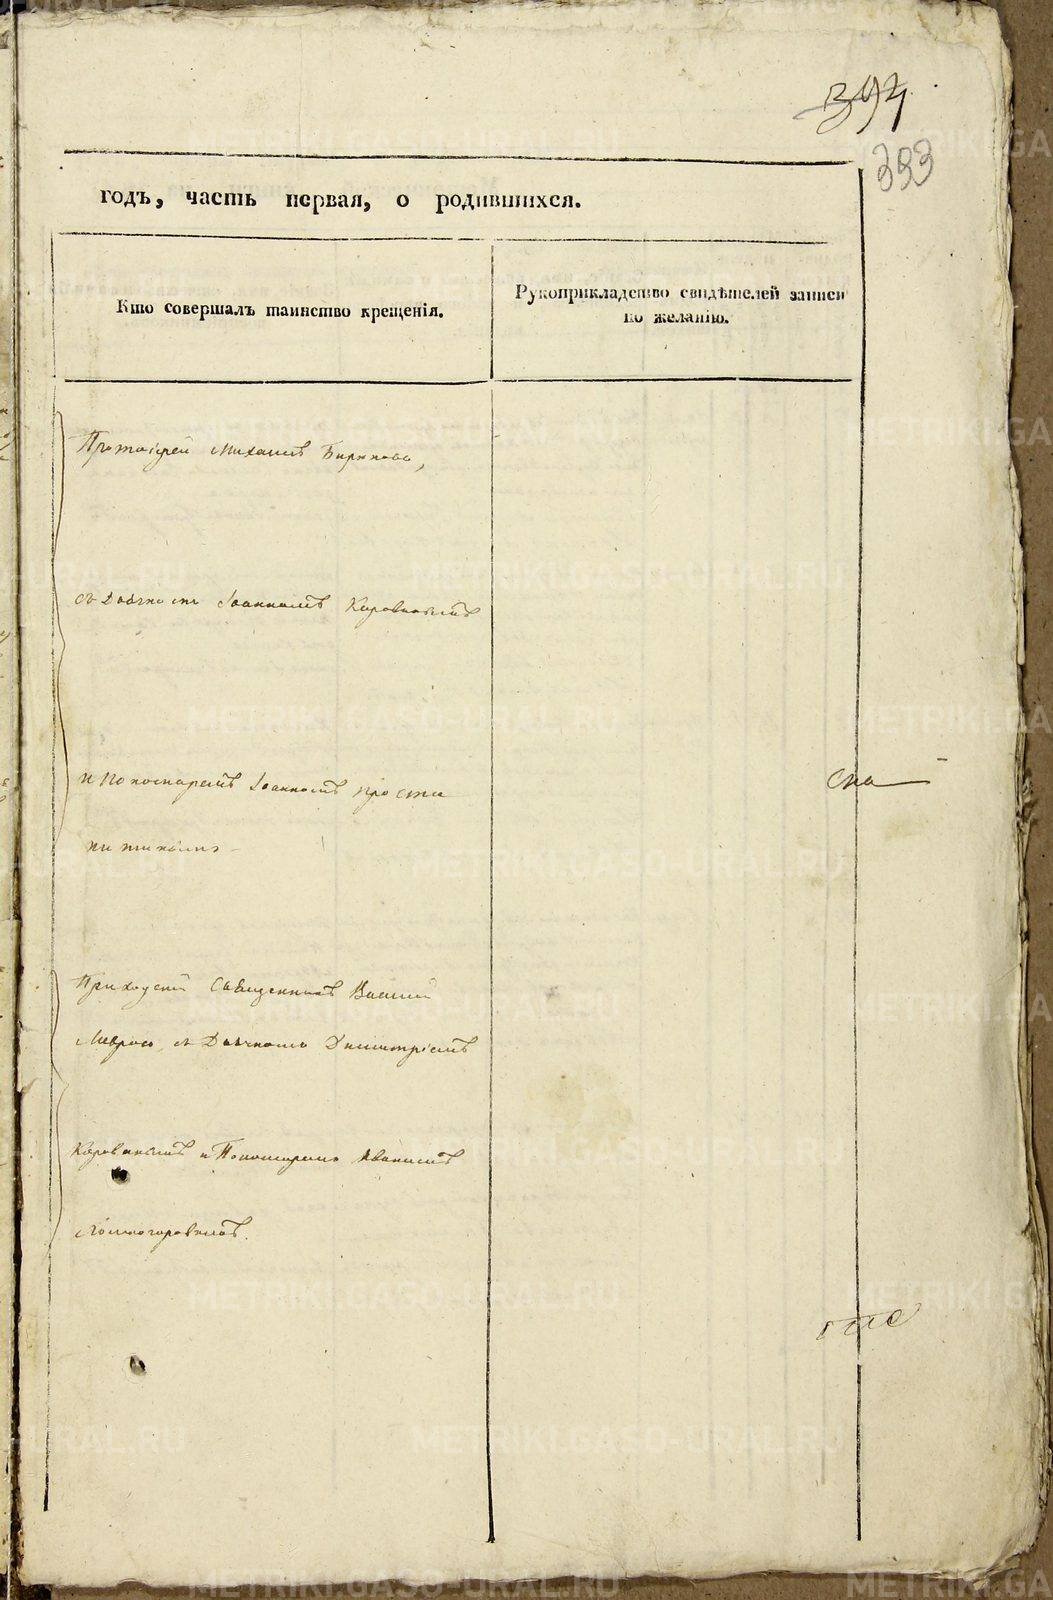 394
393
годъ, часть первая, о родившихся.
Кто совершалъ таинство крещенія.
Рукоприкладство свидѣтелей записи
по желанію.
Протоіерей Михаилъ Бирюковъ,
съ Дьячкомъ Іоанномъ Коровинымъ
и Пономаремъ Іоанномъ
Приходскій Священникъ Василій
съ Дьячкомъ Димитріемъ
Коровинымъ и Пономаремъ Иваномъ
METRIKI.GASO-URAL.RU